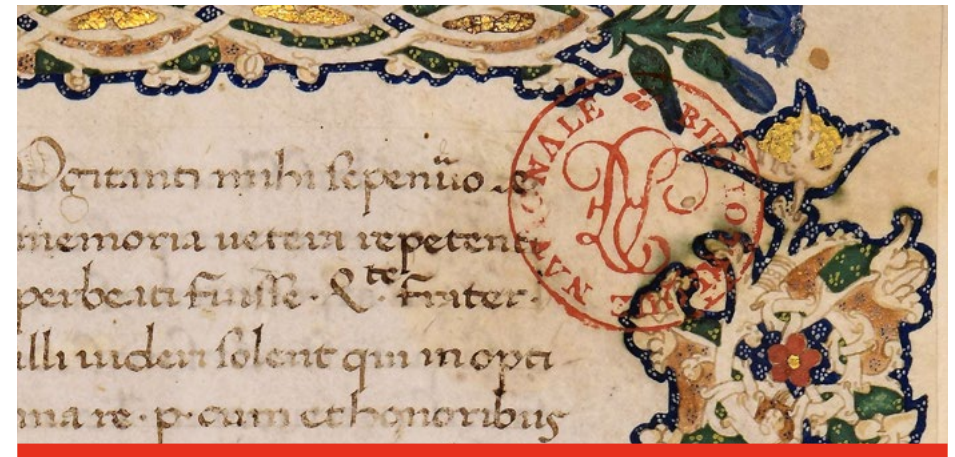 ogitanti mihi sepenūo et
memoria uetera repetenti
perbeati fuisse · Q te · frater ·
illi uideri solent qui in opti
ma re · p · cum et honoribus
BIBLIOTHEQUE NATIONALE